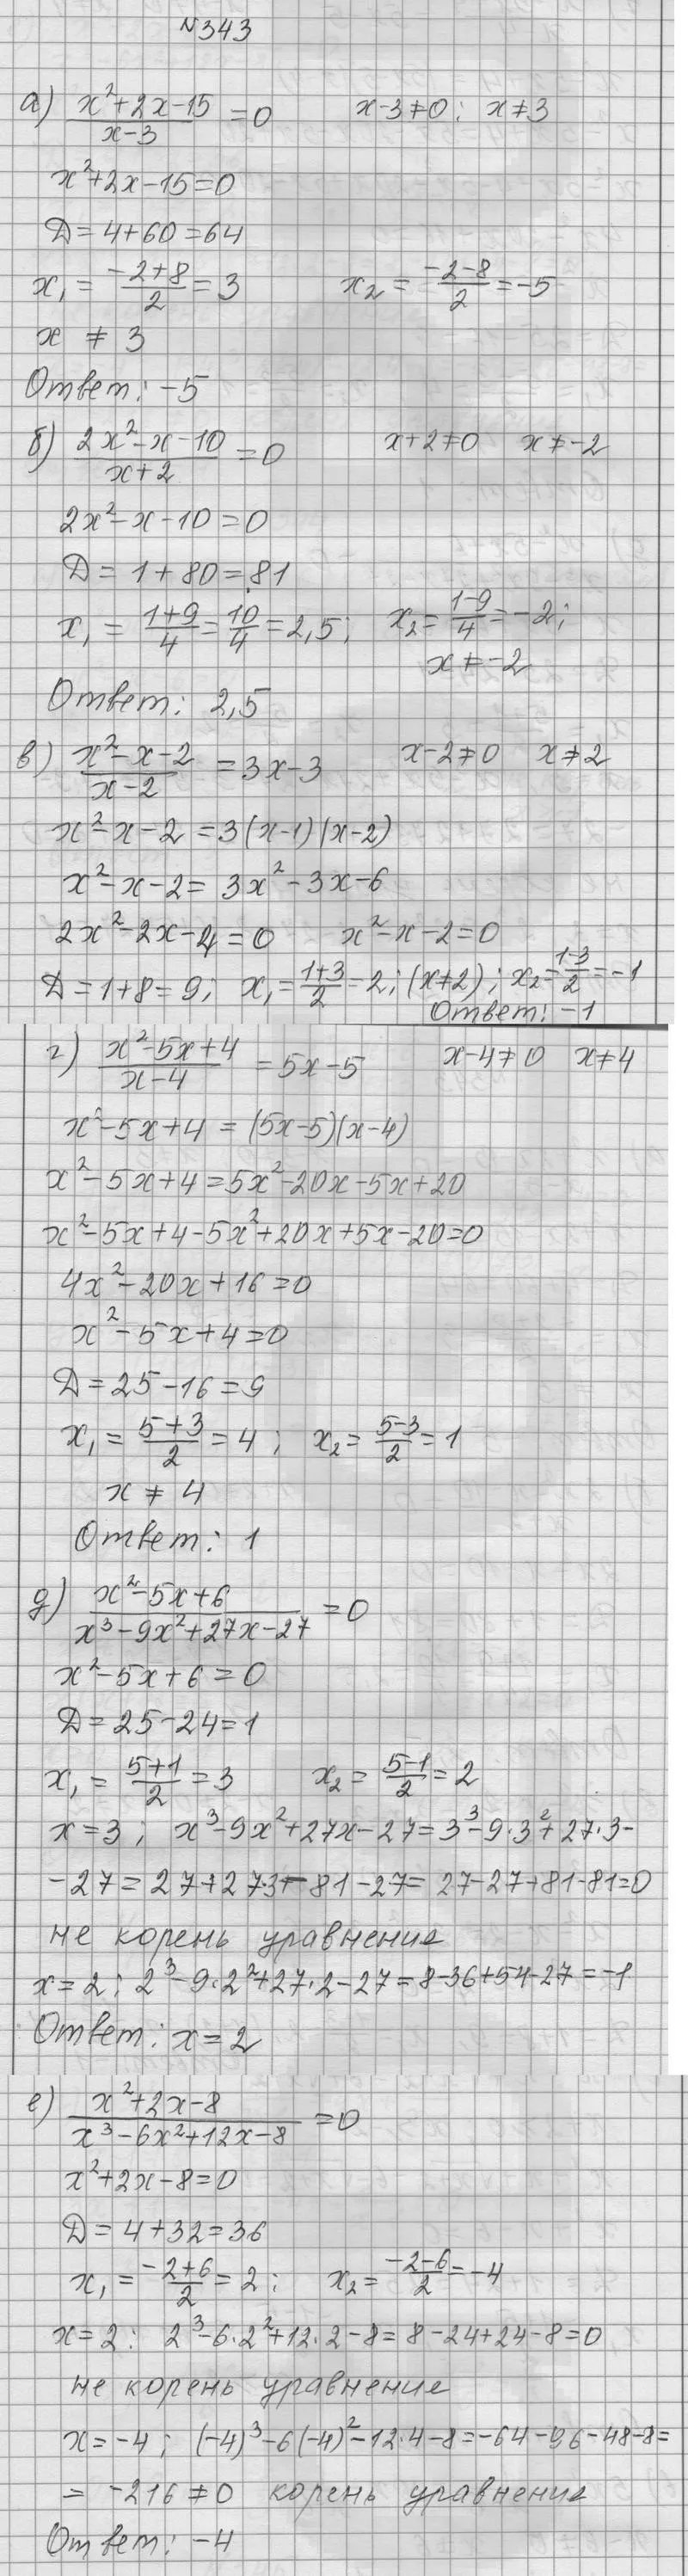 №343
а) (x²+2x-15)/(x-3) = 0 x-3≠0; x≠3
x²+2x-15=0
D=4+60=64
x₁ = (-2+8)/2 = 3 x₂ = (-2-8)/2 = -5
x ≠ 3
Ответ: -5
б) (2x²-x-10)/(x+2) = 0 x+2≠0 x≠-2
2x²-x-10=0
D=1+80=81
x₁ = (1+9)/4 = 10/4 = 2,5; x₂ = (1-9)/4 = -2;
x≠-2
Ответ: 2,5
в) (x²-x-2)/(x-2) = 3x-3 x-2≠0 x≠2
x²-x-2=3(x-1)(x-2)
x²-x-2=3x²-3x-6
2x²-2x-4=0 x²-x-2=0
D=1+8=9; x₁ = (1+3)/2 = 2; (x≠2); x₂ = (1-3)/2 = -1
Ответ: -1
г) (x²-5x+4)/(x-4) = 5x-5 x-4≠0 x≠4
x²-5x+4=(5x-5)(x-4)
x²-5x+4=5x²-20x-5x+20
x²-5x+4-5x²+20x+5x-20=0
4x²-20x+16=0
x²-5x+4=0
D=25-16=9
x₁ = (5+3)/2 = 4; x₂ = (5-3)/2 = 1
x ≠ 4
Ответ: 1
д) (x²-5x+6)/(x³-9x²+27x-27) = 0
x²-5x+6=0
D=25-24=1
x₁ = (5+1)/2 = 3 x₂ = (5-1)/2 = 2
x=3; x³-9x²+27x-27=3³-9·3²+27·3-
-27=27+27·3-81-27=27-27+81-81=0
не корень уравнение
x=2; 2³-9·2²+27·2-27=8-36+54-27=-1
Ответ: x=2
е) (x²+2x-8)/(x³-6x²+12x-8) = 0
x²+2x-8=0
D=4+32=36
x₁ = (-2+6)/2 = 2; x₂ = (-2-6)/2 = -4
x=2: 2³-6·2²+12·2-8=8-24+24-8=0
не корень уравнение
x=-4; (-4)³-6(-4)²-12·4-8=-64-96-48-8=
= -216≠0 корень уравнение
Ответ: -4